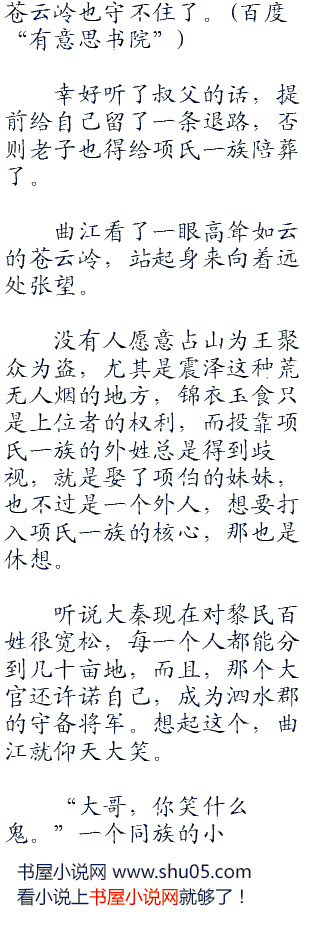 苍云岭也守不住了。(百度
“有意思书院”)
幸好听了叔父的话，提
前给自己留了一条退路，否
则老子也得给项氏一族陪葬
了。
曲江看了一眼高耸如云
的苍云岭，站起身来向着远
处张望。
没有人愿意占山为王聚
众为盗，尤其是震泽这种荒
无人烟的地方，锦衣玉食只
是上位者的权利，而投靠项
氏一族的外姓总是得到歧
视，就是娶了项伯的妹妹，
也不过是一个外人，想要打
入项氏一族的核心，那也是
休想。
听说大秦现在对黎民百
姓很宽松，每一个人都能分
到几十亩地，而且，那个大
官还许诺自己，成为泗水郡
的守备将军。想起这个，曲
江就仰天大笑。
“大哥，你笑什么
鬼。”一个同族的小
书屋小说网 www.shu05.com
看小说上书屋小说网就够了！